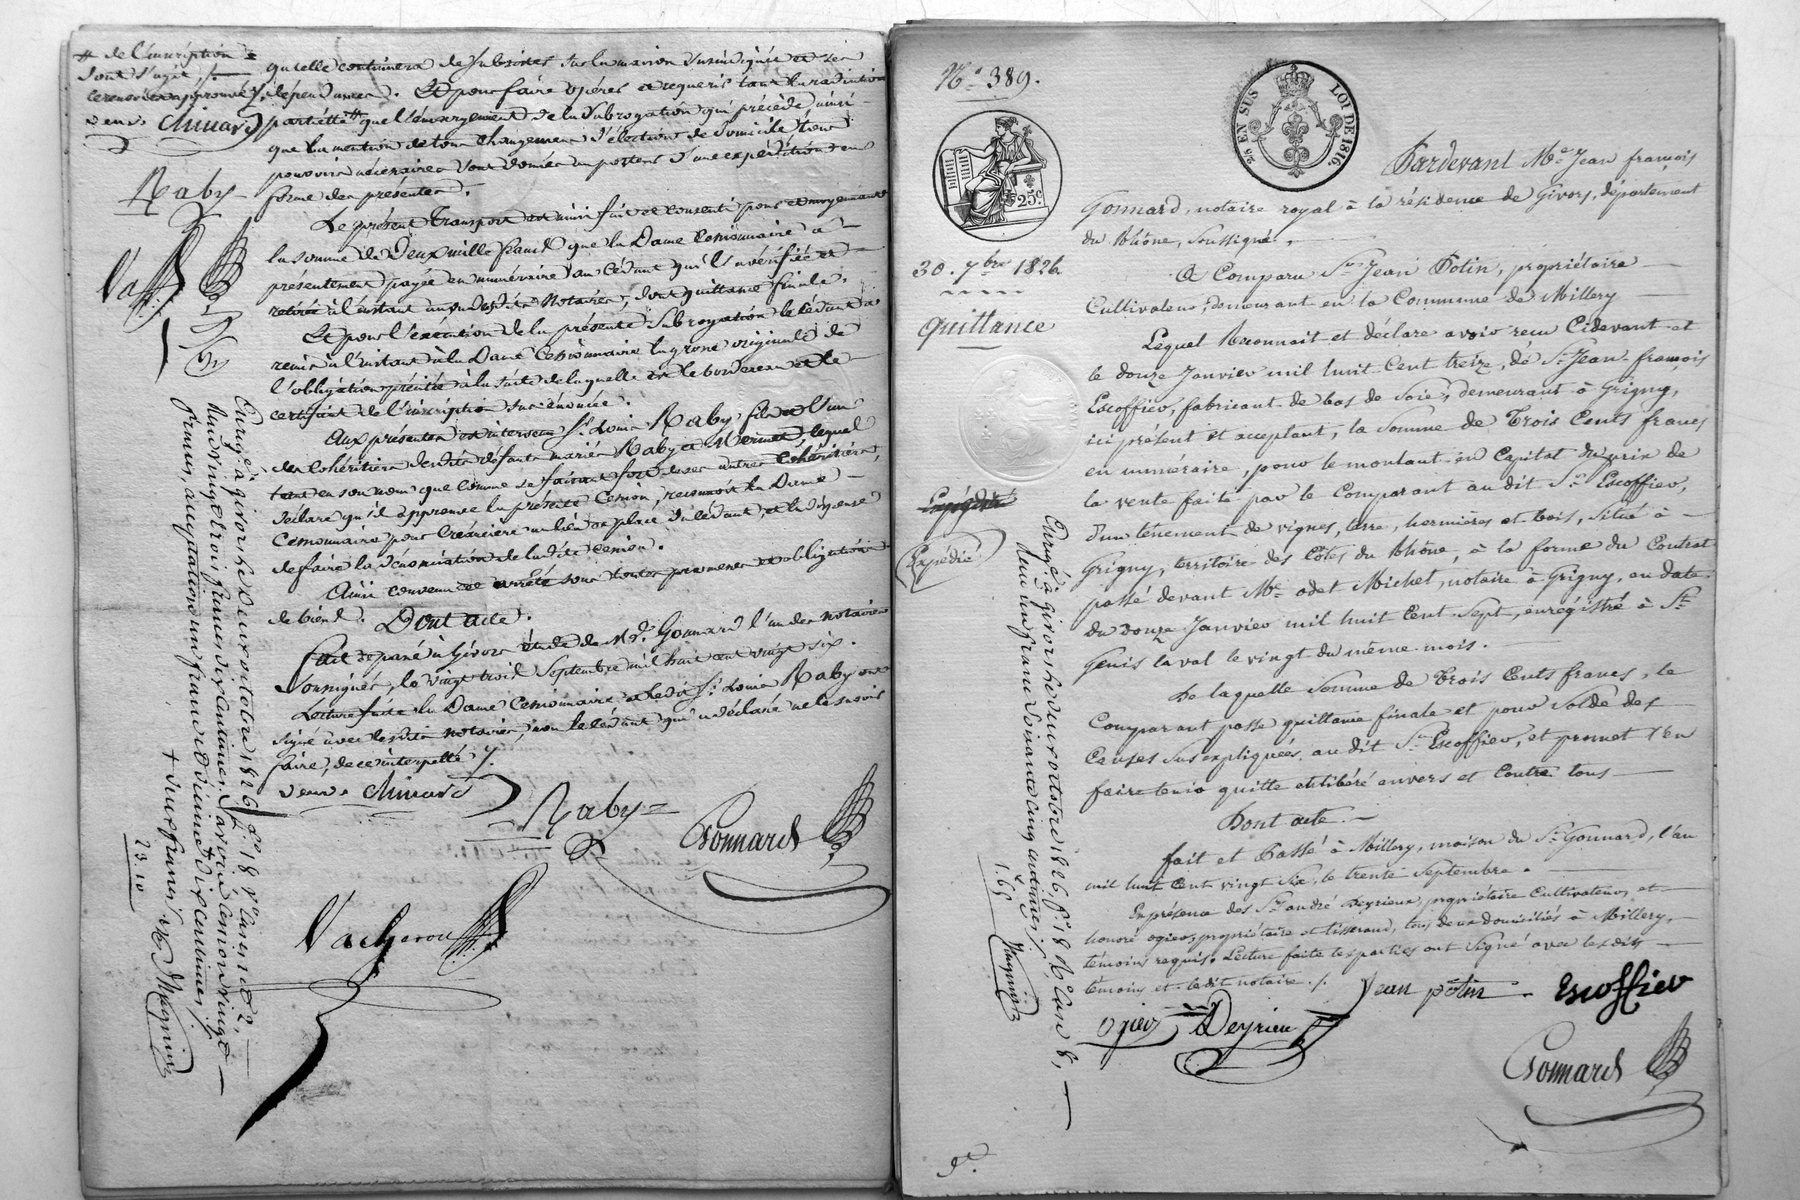 # de l'inscription
dont s'agit, /.
ce renvoi approuvé /.
veuve Chinard
Raby
Va
qu'elle continuera de subsister sur la maison susindiquée et ses
dépendances. Et pour faire opérer et requérir tant la radiation
partielle # que l'émargement de la subrogation qui précède, ainsi
que la mention de tous changemens d'élection de domicile, tous
pouvoirs nécessaires sont donnés au porteur d'une expédition en
forme des présentes.
Le présent transport est ainsi fait et consenti pour et moyennant
la somme de Deux mille francs que la Dame Cessionnaire a
présentement payée en numéraire au Cédant qui l'a vérifiée et
retirée à l'instant au vu desdits Notaires, dont quittance finale.
Et pour l'exécution de la présente Subrogation le Cédant a
remis à l'instant à la Dame Cessionnaire la grosse originale de
l'obligation précitée à la suite de laquelle est le bordereau et le
certificat de l'inscription sus énoncée.
Aux présentes est intervenu Sr. Louis Raby fils et l'un
des Cohéritiers desdits défunts mariés Raby et lequel
tant en son nom que comme se faisant fort de ses autres Cohéritiers,
déclare qu'il approuve la présente Cession, reconnoit la Dame
Cessionnaire pour Créancière au lieu et place du Cédant, et la dispense
de faire la dénonciation de la dite cession.
Ainsi convenu et arrêté sous toutes promesses et obligations
de biens. Dont acte.
Fait et passé à Givors étude de Me. Gonnard l'un des notaires
soussignés, le vingt trois Septembre mil huit cent vingt six.
Lecture faite la Dame Cessionnaire et ledit Sr. Louis Raby ont
signé avec lesdits notaires, non le Cédant qui a déclaré ne le savoir
faire, de ce interpellé /.
veuve Chinard
Raby
Gonnard
Vacheron
Enrgé à Givors le deux octobre 1826, fo. 18 Vo. Case 2,
Reçu vingt trois francs dix centimes, Savoir cession vingt
francs, acceptation un franc et dixième dix centimes /.
+ deux francs
23.10
No. 389.
25 EN SUS LOI DE 1816.
25c.
30. 7bre 1826
Quittance
Expédié
Expédié
Pardevant Me. Jean françois
Gonnard, notaire royal à la résidence de Givors, département
du Rhône, soussigné,
A Comparu Sr. Jean Potin, propriétaire
Cultivateur, demeurant en la Commune de Millery
Lequel Reconnait et déclare avoir reçu Cidevant et
le douze Janvier mil huit Cent treize, de Sr. Jean françois
Escoffier, fabricant de bas de Soie, demeurant à Grigny,
ici présent et acceptant, la Somme de Trois Cents francs
en numéraire, pour le montant en Capital du prix de
la vente faite par le Comparant au dit Sr. Escoffier,
d'un tènement de vignes, terre, hermières et bois, situé à
Grigny, territoire des Côtes du Rhône, à la forme du Contrat
passé devant Me. odet Michel, notaire à Grigny, en date
du douze Janvier mil huit Cent Sept, enregistré à St.
Genis laval le vingt du même mois.
De laquelle Somme de Trois Cents francs, le
Comparant passe quittance finale et pour Solde des
Causes Susexpliquées au dit Sr. Escoffier, et promet l'en
faire tenir quitte et libéré envers et Contre tous
Dont acte.
fait et Passé à Millery, maison du Sr. Gonnard, l'an
mil huit Cent vingt Six, le trente Septembre.
En présence des Srs. andré Deyrieu, propriétaire Cultivateur, et
honoré ogier, propriétaire et tisserand, tous deux domiciliés à Millery,
témoins requis. Lecture faite les parties ont Signé avec les dits
témoins et le dit notaire. /.
Jean potin
Escoffier
ogier
Deyrieu
Gonnard
Enrgé à Givors le deux octobre 1826, fo. 18 Ro. Case 8,
Reçu un franc Soixante cinq centimes /.
1.65